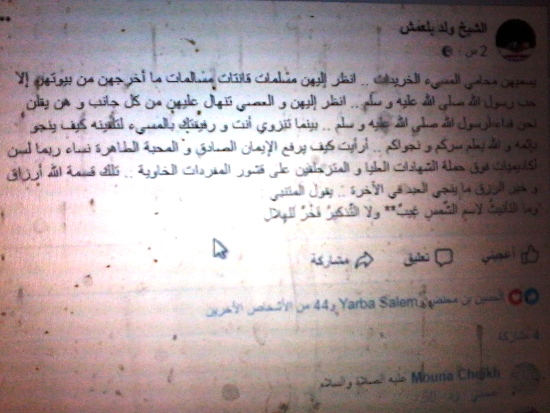 الشيخ ولد بلعمش
2 س ·
يسميهن محامي المسيء الخريدات .. انظر إليهن مسلمات قانتات مسالمات ما أخرجهن من بيوتهن إلا
حب رسول الله صلى الله عليه و سلم .. انظر إليهن و العصي تنهال عليهن من كل جانب و هن يقلن
نحن فداء لرسول الله صلى الله عليه و سلم .. بينما تنزوي أنت و رفيقتك بالمسيء لتلقينه كيف ينجو
بإثمه و الله يعلم سركم و نجواكم .. أرأيت كيف يرفع الإيمان الصادق و المحبة الطاهرة نساء ربما لسن
أكاديميات فوق حملة الشهادات العليا و المتزحلقين على قشور المفردات الخاوية .. تلك قسمة الله أرزاق
و خير الرزق ما ينجي العبد في الآخرة .. يقول المتنبي
وما التأنيثُ لاسمِ الشمسِ عيبٌ** ولا التذكيرُ فخرٌ للهلالِ
أعجبني تعليق مشاركة
الحسين بن محنض، Yarba Salem و44 من الأشخاص الآخرين
4 مشاركة
Mouna Cheikh عليه الصلاة والسلام